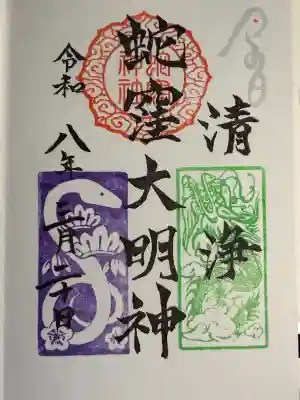 清浄
蛇窪大明神
令和八年二月二十日